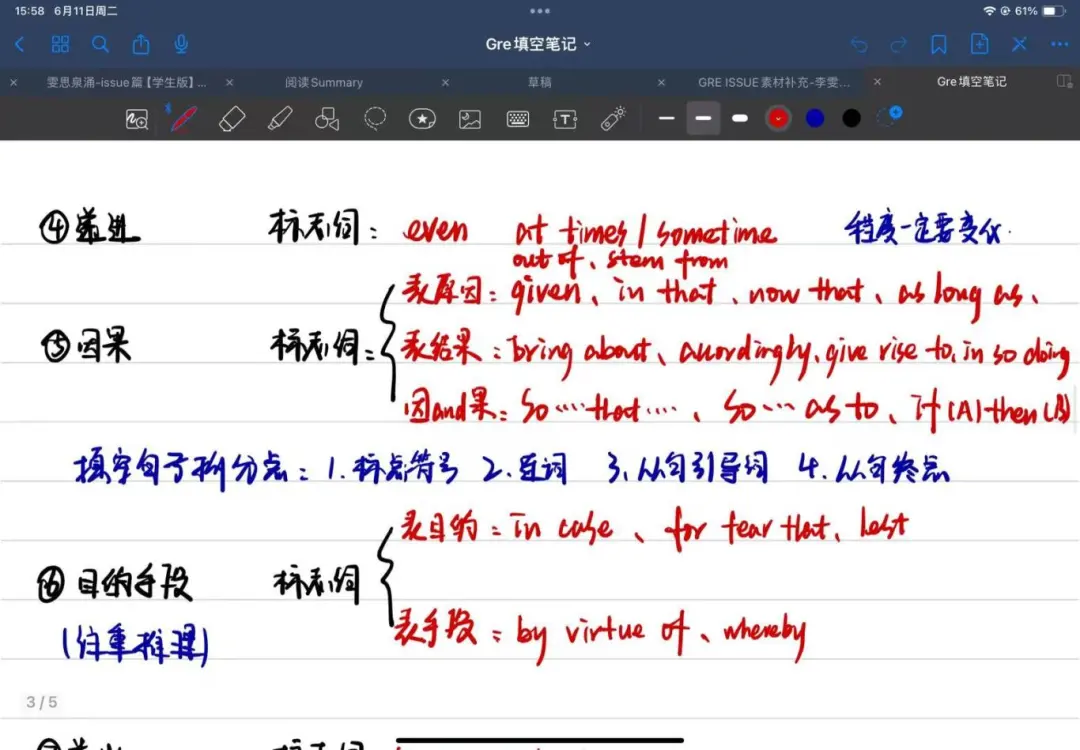 15:58 6月11日周二
61%
Gre填空笔记
雯思泉涌-issue篇【学生版】... 阅读Summary 草稿 GRE ISSUE素材补充-李雯... Gre填空笔记
④递进 标志词: even at times / sometime 程度一定要变化.
out of、stem from
表原因: given、in that、now that、as long as、
⑤因果 标志词:
表结果: bring about、accordingly、give rise to、in so doing
因and果: so……that……、so…as to、if (A) then (B)
填空句子拆分点: 1.标点符号 2.连词 3.从句引导词 4.从句终点
表目的: in case、for fear that、lest
⑥目的手段 标志词
(侧重推理)
表手段: by virtue of、whereby
3/5
标志词